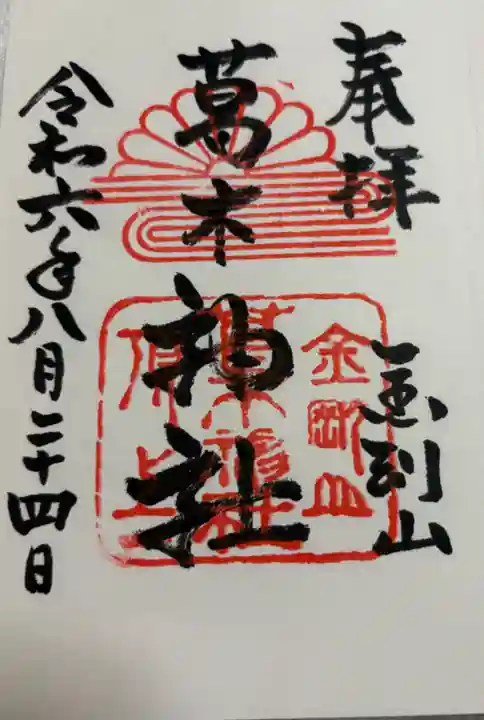 奉拝
金剛山
葛木神社
令和六年八月二十四日
金剛山
葛木神社
頂上